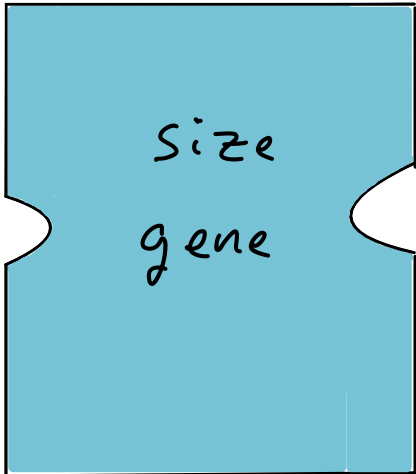 size
gene